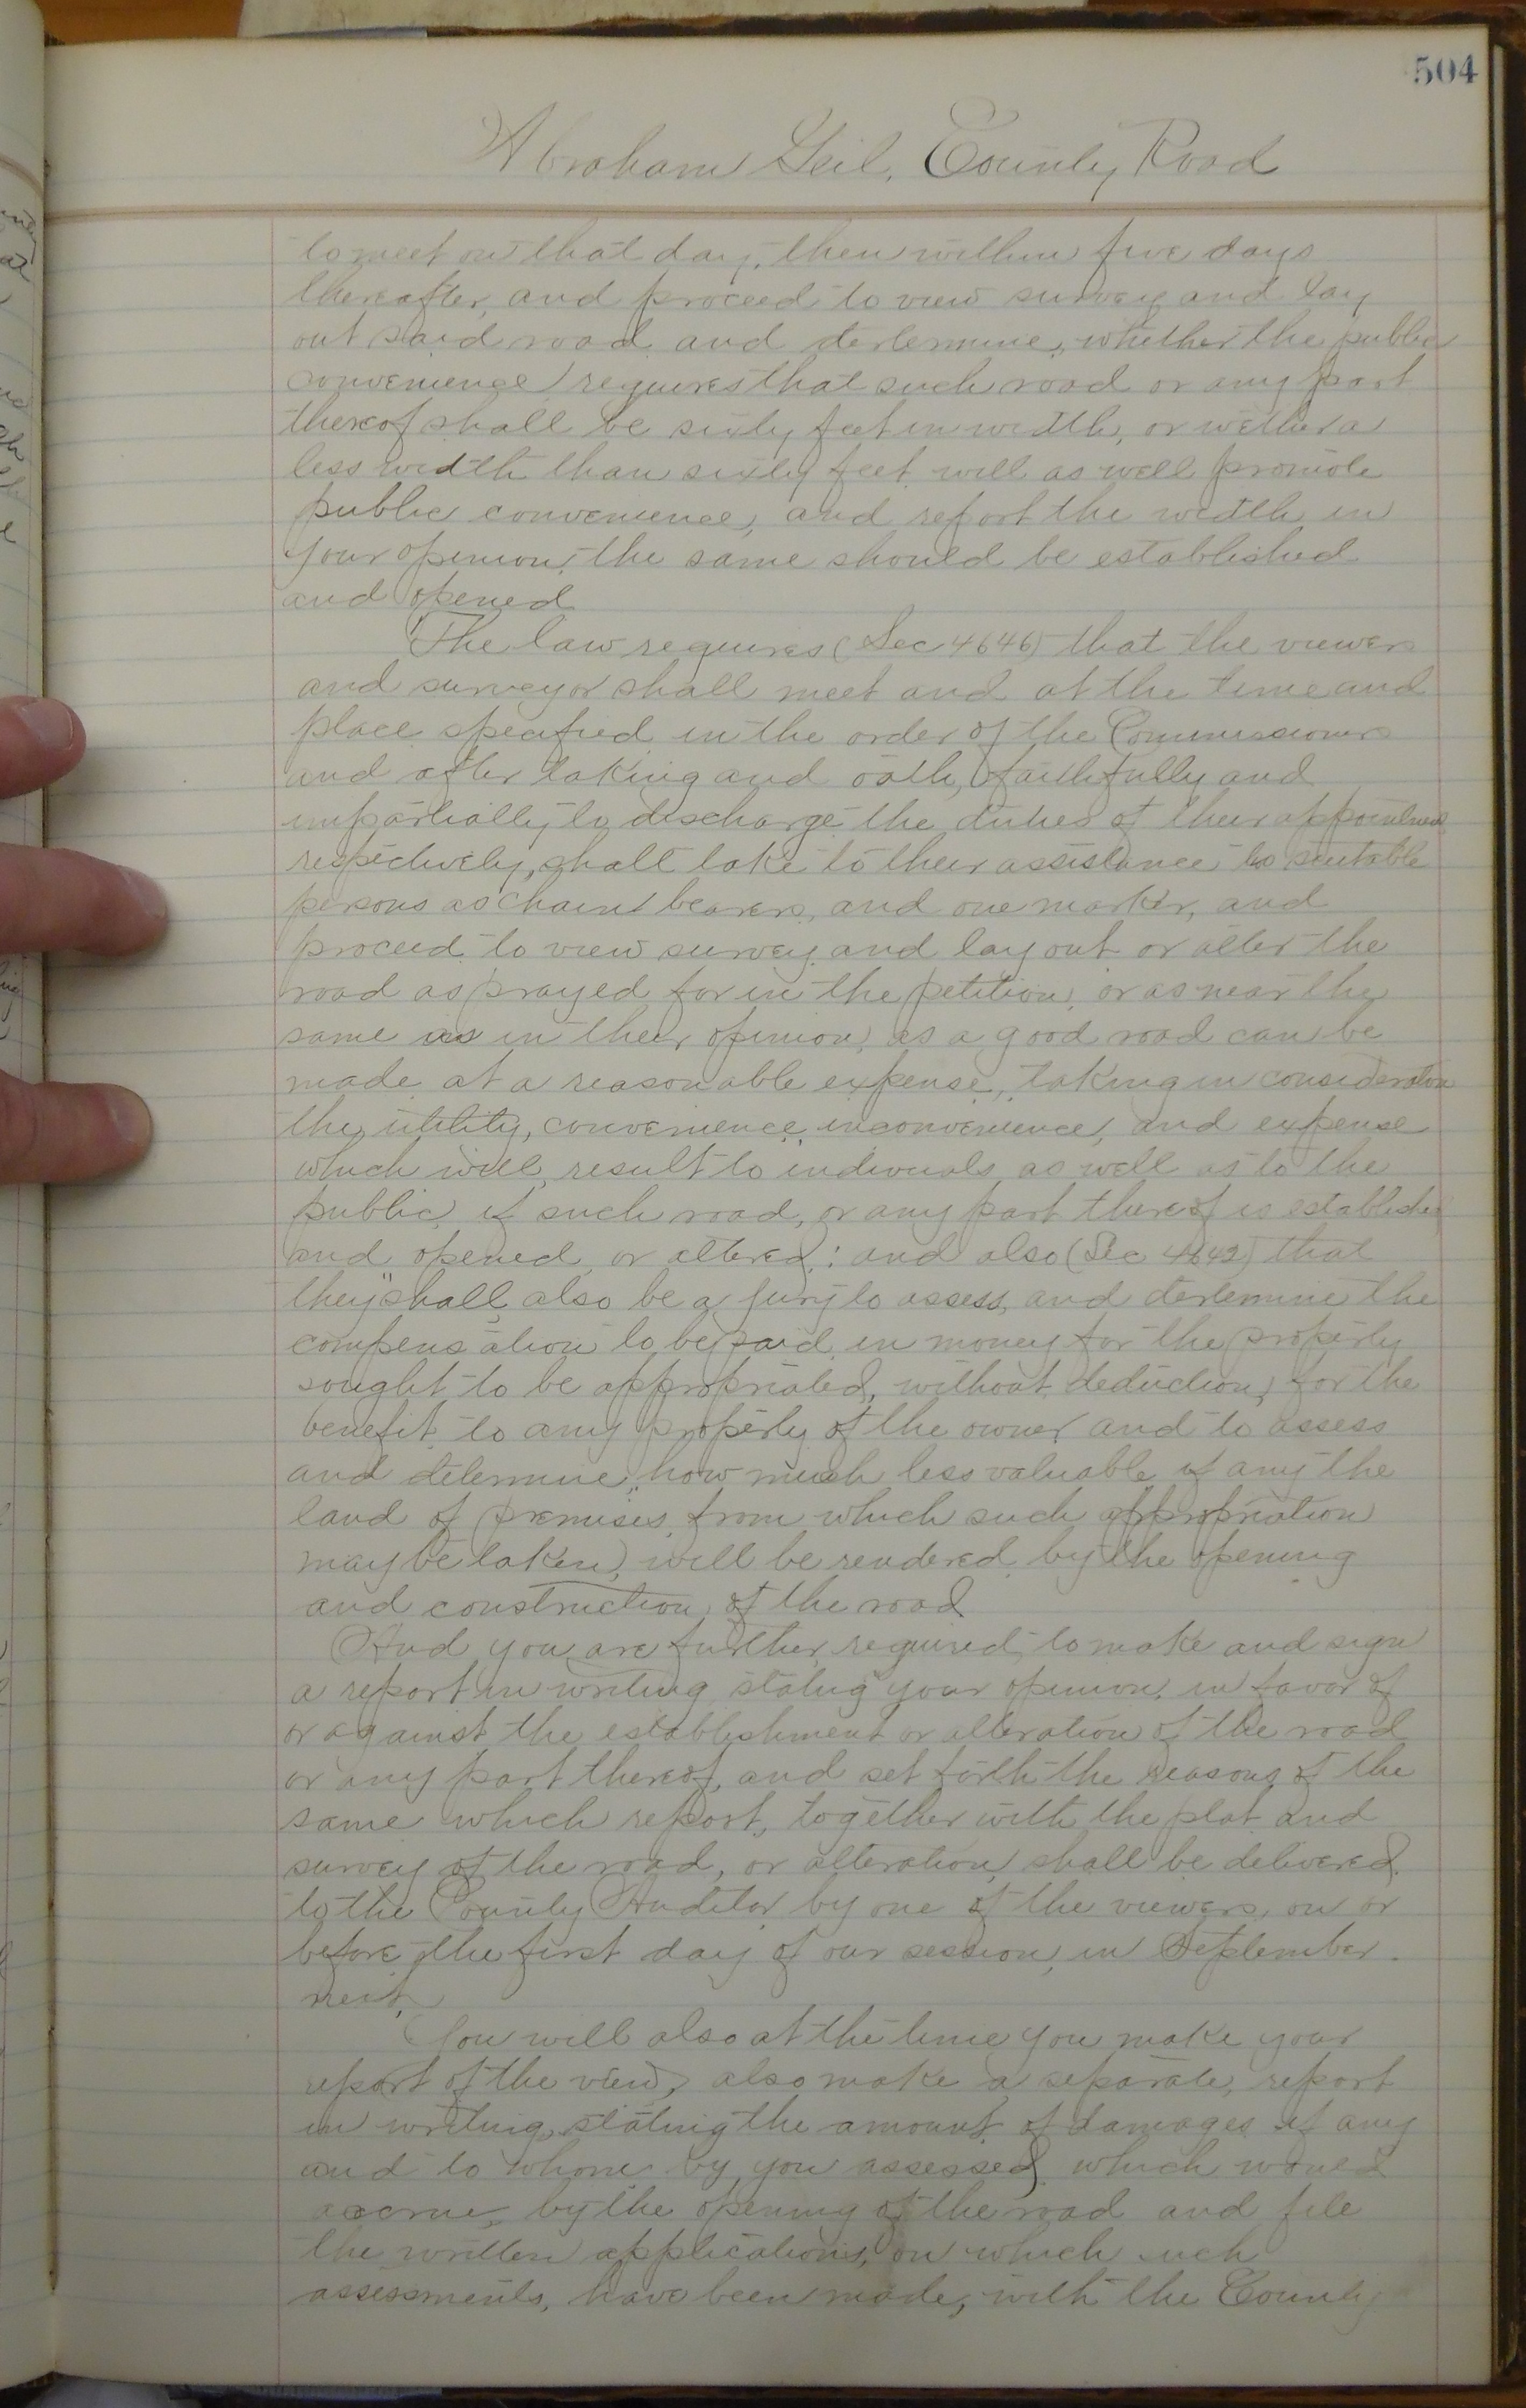 504
Abraham Geil, County Road
to meet on that day, then within five days
thereafter, and proceed to view survey and lay
out said road and detlermine, whether the public
convenience requires that such road or any part
thereof shall be sixty feet in width, or wether a
less width than sixty feet will as well promote
public convenience, and report the width in
your openion, the same should be established
and opened
The law requires (Sec 4646) that the viewers
and surveyor shall meet and at the time and
place specified in the order of the Commissioners
and after taking and oath, faithfully and
impartially to discharge the duties of their appointmed
respectively, shall take to their assistance to suitable
persons as chain bearers, and one marker, and
proceed to view survey and lay out or alter the
road as prayed for in the petition, or as near the
same as in their opinion, as a good road can be
made at a reasonable expense, taking in consideration
the utility, convenience, inconvenience, and expense
which will, result to indivuals, as well as to the
public, if such road, or any part thereof is established
and opened, or altered,: and also (Sec 4642) that
they "shall also be a jury to assess, and detlemine the
compensation to be paid, in money for the property
sought to be appropriated, without deduction, for the
benefit, to any property of the owner and to assess
and detemine, how much less valuable if any the
land of premises, from which such appropriation
may be taken, will be rendered by the opening
and construction, of the road
And you are further required, to make and sign
a report in writing statug your opinion, in favor of
or against the establishment or alteration of the road
or any part thereof, and set forth the reasons of the
same which report, together with the plat and
survey of the road, or alteration, shall be delivered
to the County Auditor by one of the viewers, on or
before, the first day of our session, in September.
next,
You will also at the time you make your
report of the view, also make a separate, report
in writing, stating the amount, of damages if any
and to whom by you assessed which would
accrue, by the opening of the road and file
the written applications, on which such
assessments, have been made, with the County